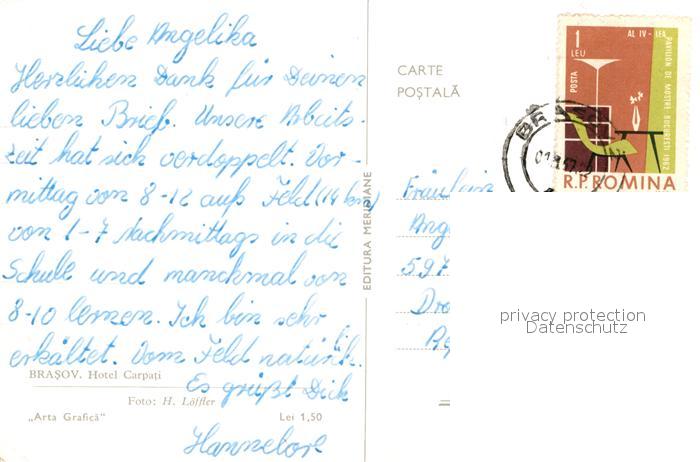 Liebe Angelika
Herzlichen Dank für Deinen
lieben Brief. Unsere Arbeits-
zeit hat sich verdoppelt. Vor-
mittag von 8-12 aufs Feld (14 km)
von 1-7 Nachmittags in die
Schule und manchmal von
8-10 lernen. Ich bin sehr
erkältet. Vom Feld natürlich.
Es grüßt Dich
Hannelore
BRAȘOV. Hotel Carpați
Foto: H. Löffler
„Arta Grafică” Lei 1,50
EDITURA MERIDIANE
CARTE
POȘTALĂ
1
LEU
POSTA
AL IV-LEA
PAVILION DE MOSTRE BUCUREȘTI 1962
R.P.ROMINA
Fräulein
Ang
597
Dre
privacy protection
Datenschutz